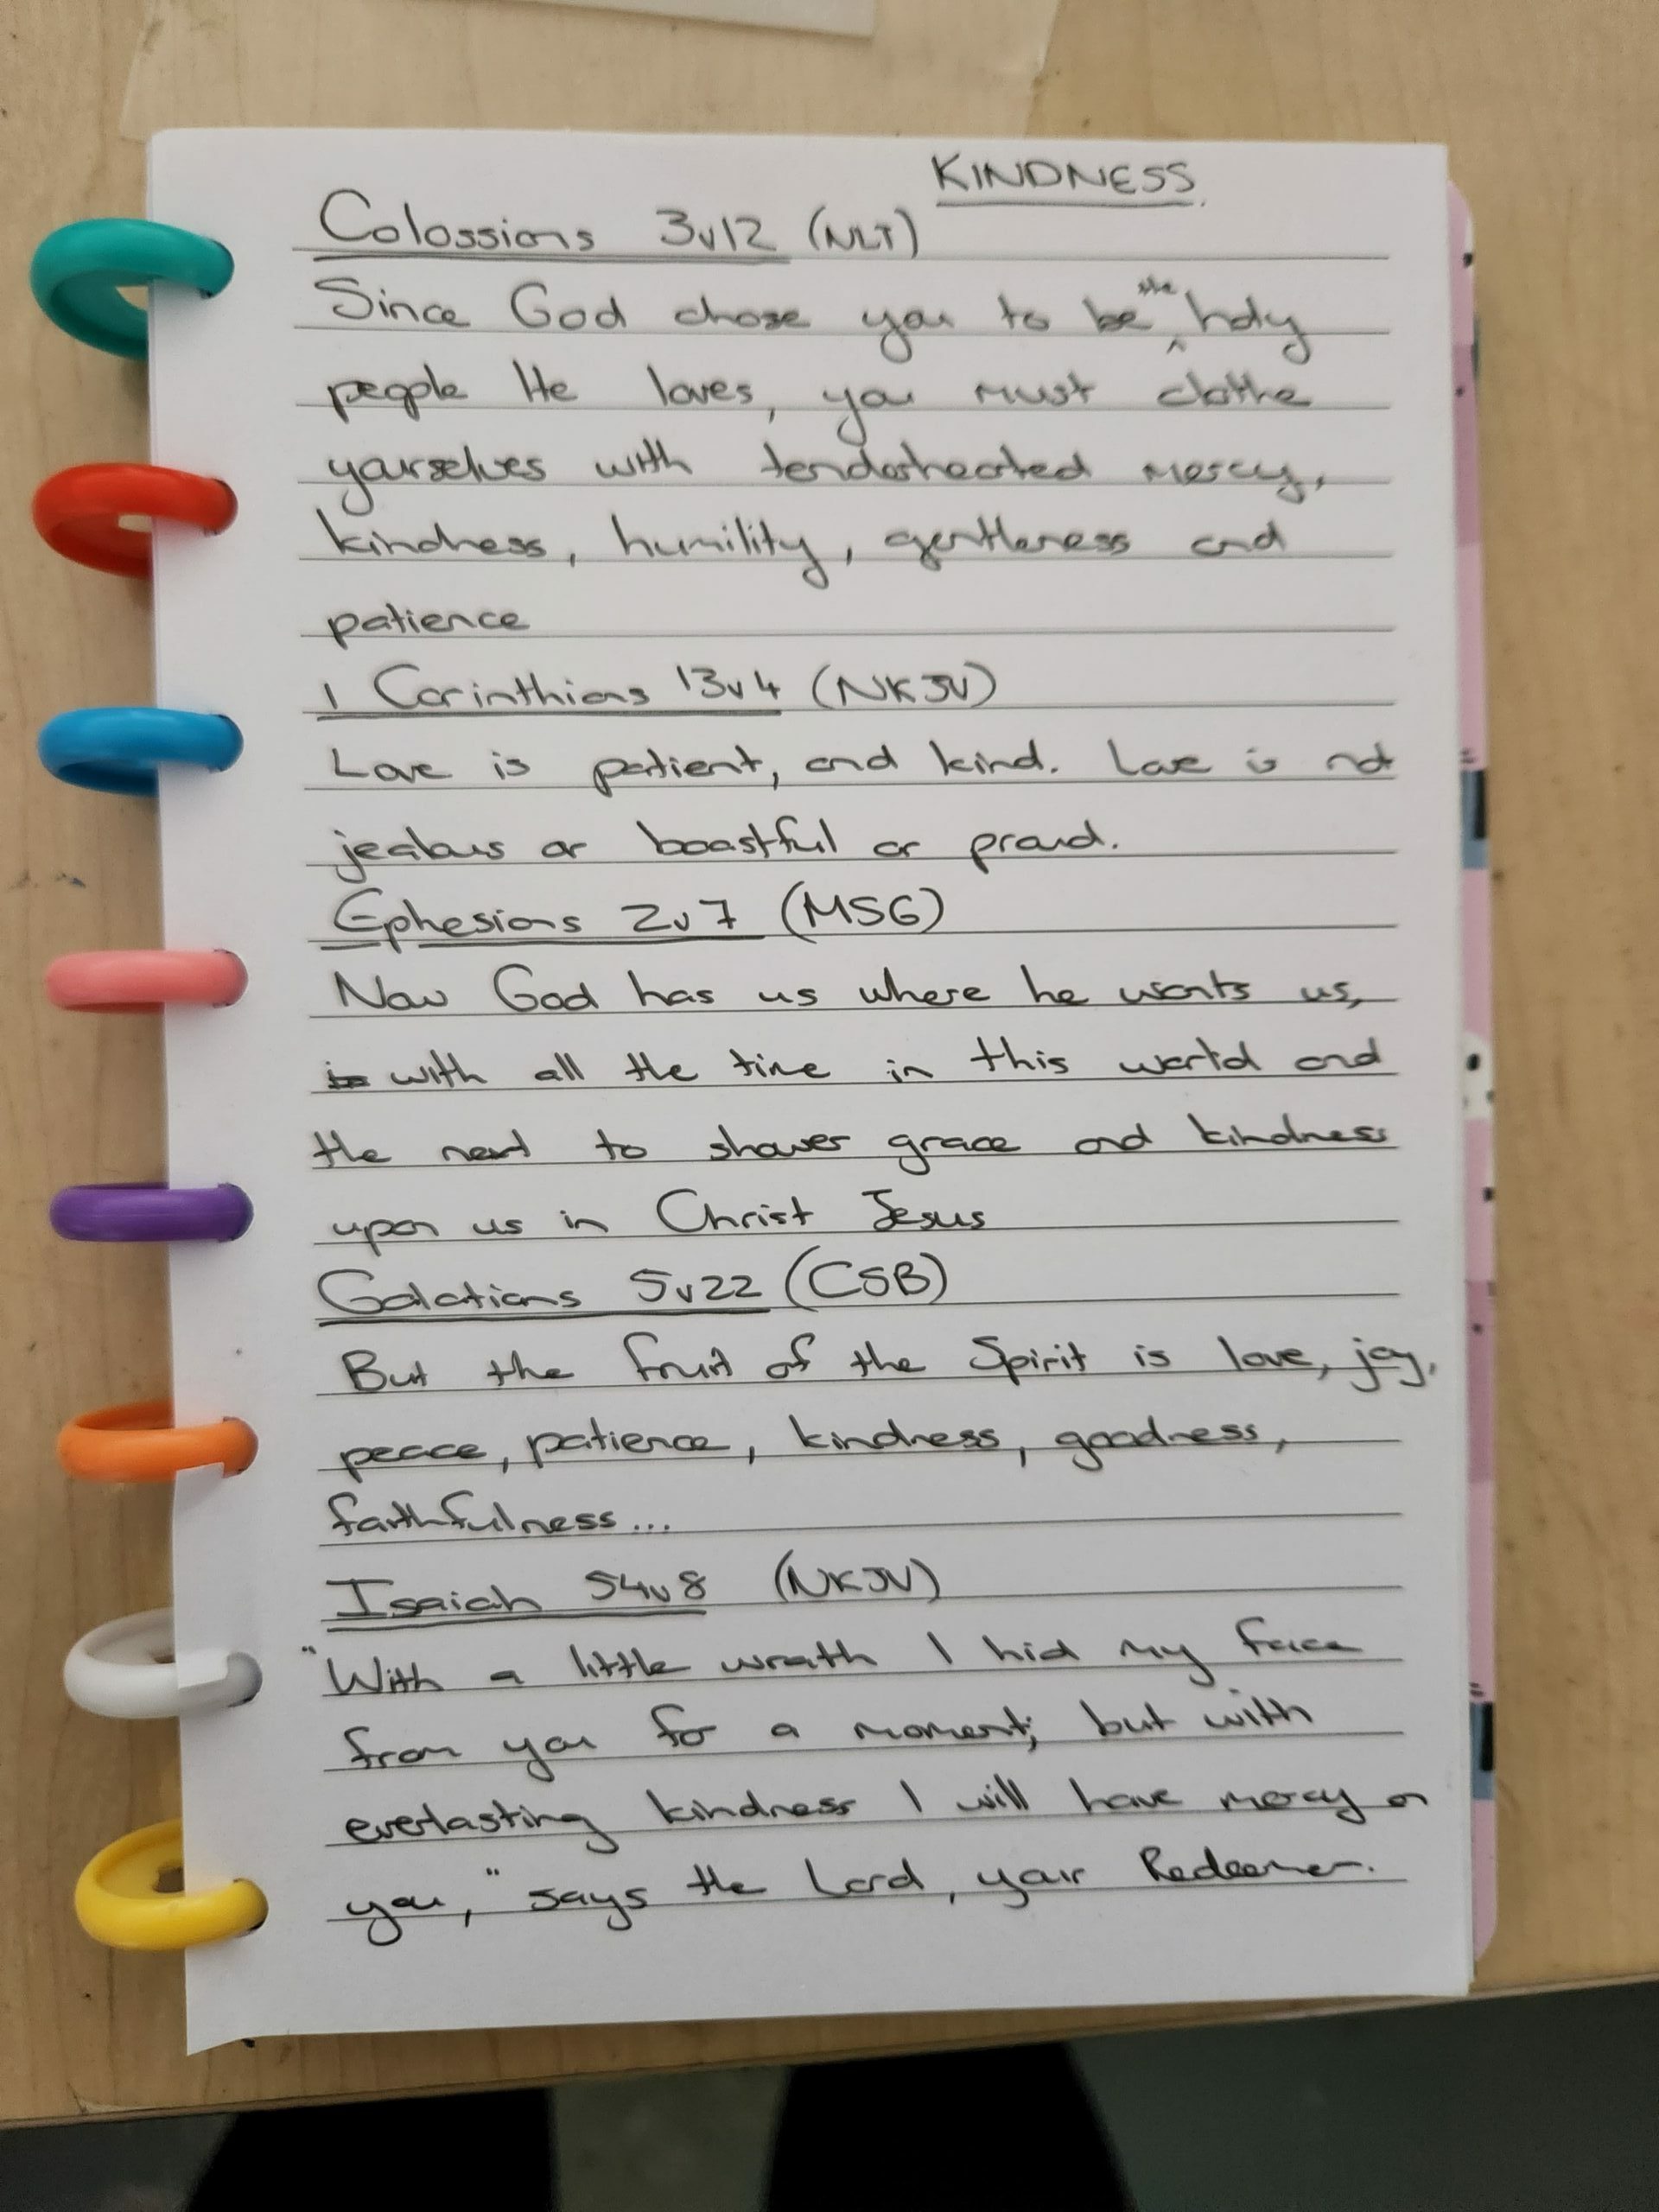 KINDNESS.
Colossians 3v12 (NLT)
Since God chose you to be the holy
people He loves, you must clothe
yourselves with tenderhearted mercy,
kindness, humility, gentleness and
patience
1 Corinthians 13v4 (NKJV)
Love is patient, and kind. Love is not
jealous or boastful or proud.
Ephesians 2v7 (MSG)
Now God has us where he wants us,
with all the time in this world and
the next to shower grace and kindness
upon us in Christ Jesus
Galatians 5v22 (CSB)
But the fruit of the Spirit is love, joy,
peace, patience, kindness, goodness,
faithfulness...
Isaiah 54v8 (NKJV)
"With a little wrath I hid my face
from you for a moment; but with
everlasting kindness I will have mercy on
you," says the Lord, your Redeemer.